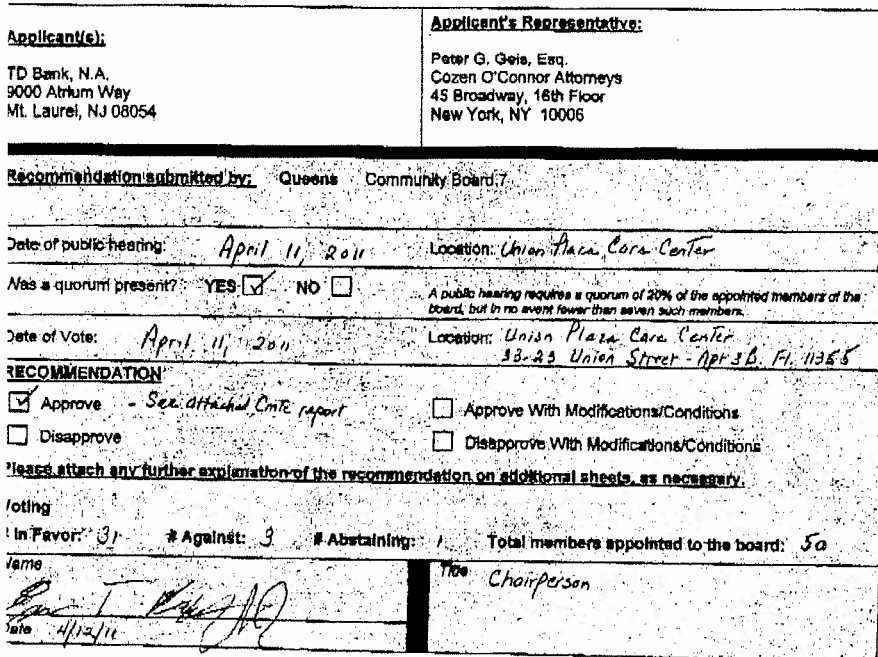 Applicant(s):
TD Bank, N.A.
9000 Atrium Way
Mt. Laurel, NJ 08054
Applicant's Representative:
Peter G. Geis, Esq.
Cozen O'Connor Attorneys
45 Broadway, 16th Floor
New York, NY 10006
Recommendation submitted by: Queens Community Board 7
Date of public hearing: April 11, 2011 Location: Union Plaza Care Center
Was a quorum present? YES NO
A public hearing requires a quorum of 20% of the appointed members of the
board, but in no event fewer than seven such members.
Date of Vote: April 11, 2011 Location: Union Plaza Care Center
33-23 Union Street - Fl. 11355
RECOMMENDATION
Approve - See attached Cmte report
Approve With Modifications/Conditions
Disapprove
Disapprove With Modifications/Conditions
Please attach any further explanation of the recommendation on additional sheets, as necessary.
Voting
# In Favor: 31 # Against: 9 # Abstaining: 1 Total members appointed to the board: 50
Name
Title Chairperson
Date 4/12/11